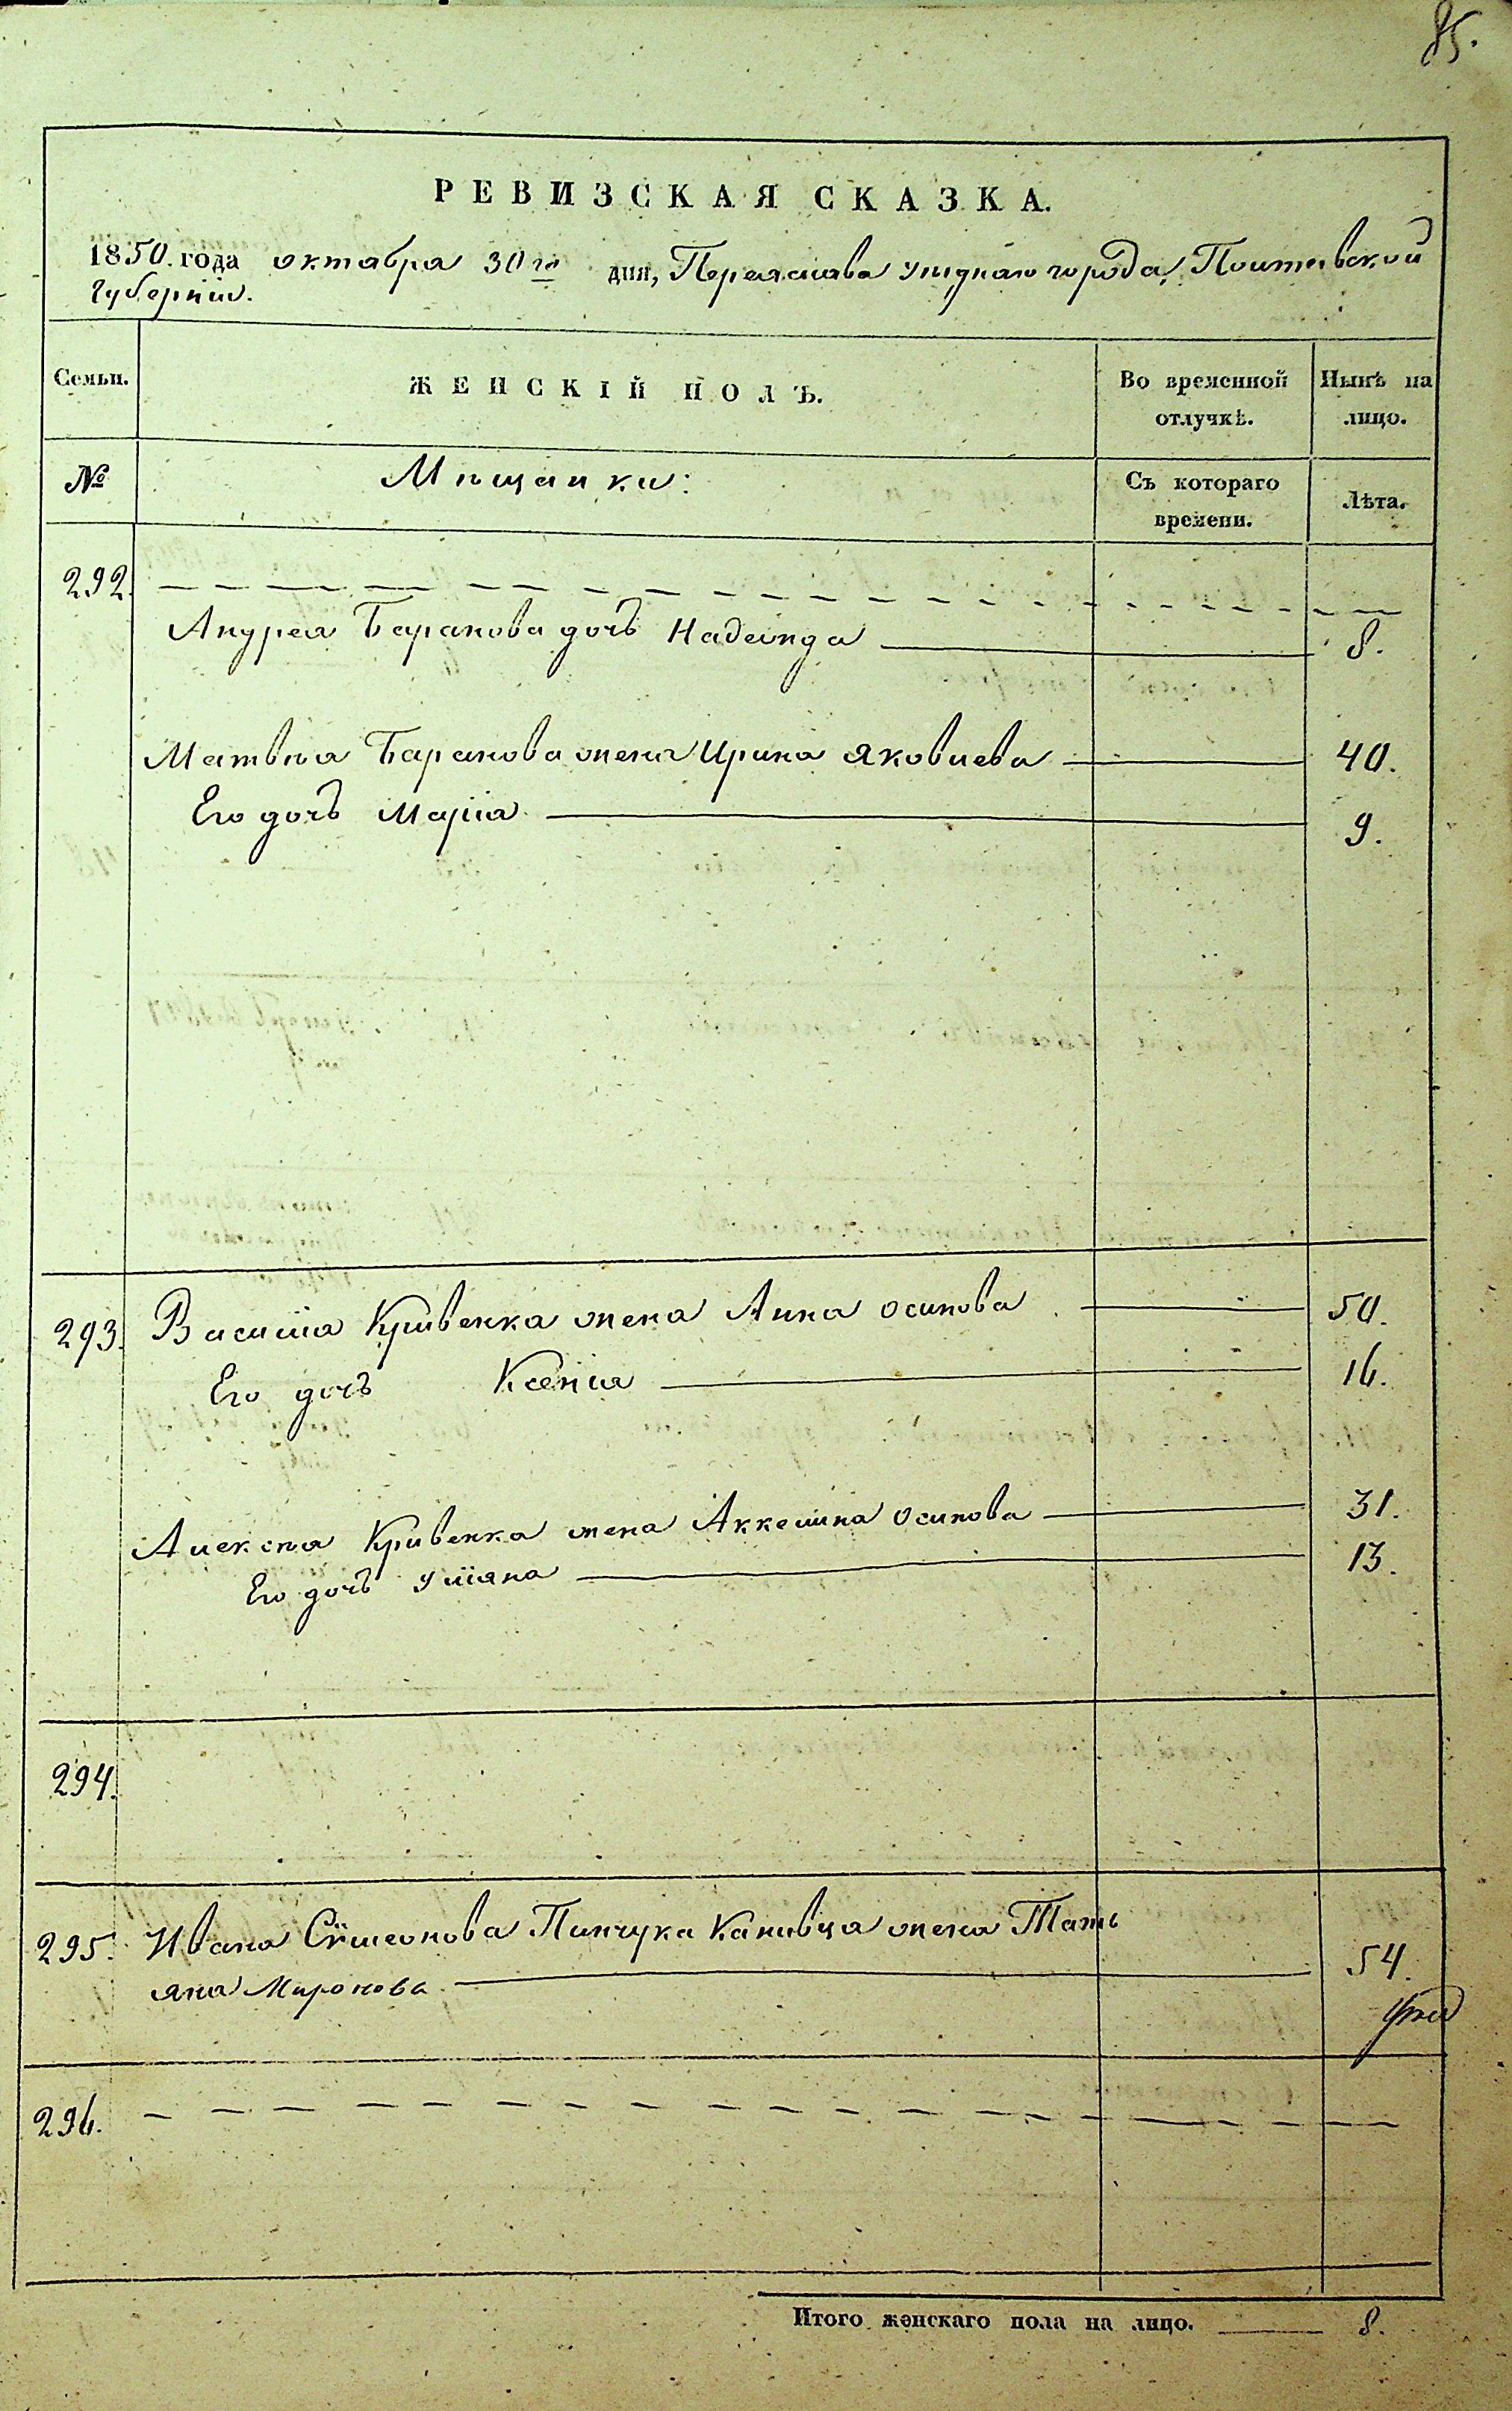 85.
РЕВИЗСКАЯ СКАЗКА.
1850. года октабра 30го дня, Переяслава уѣзднаго города, Полтавской
Губерніи.
Семьи. ЖЕНСКІЙ ПОЛЪ. Во временной отлучкѣ. Нынѣ на лицо.
№ Мѣщанки: Съ котораго времени. Лѣта.
292.
Андрея Баранова дочь Надежда 8.
Матвѣя Баранова жена Ирина Яковлева 40.
Его дочь Марія 9.
293. Василія Кривенка жена Анна Осипова 50.
Его дочь Ксенія 16.
Алексѣя Кривенка жена Аккелина Осипова 31.
Его дочь Уліяна 13.
294.
295. Ивана Симеонова Пинчука Канивца жена Тать
яна Миронова 54.
296.
Итого женскаго пола на лицо. 8.